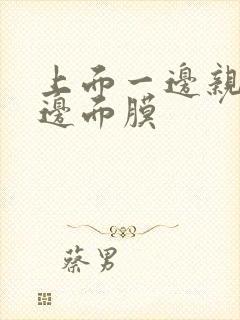 上而一邊親
邊而膜
蔡男